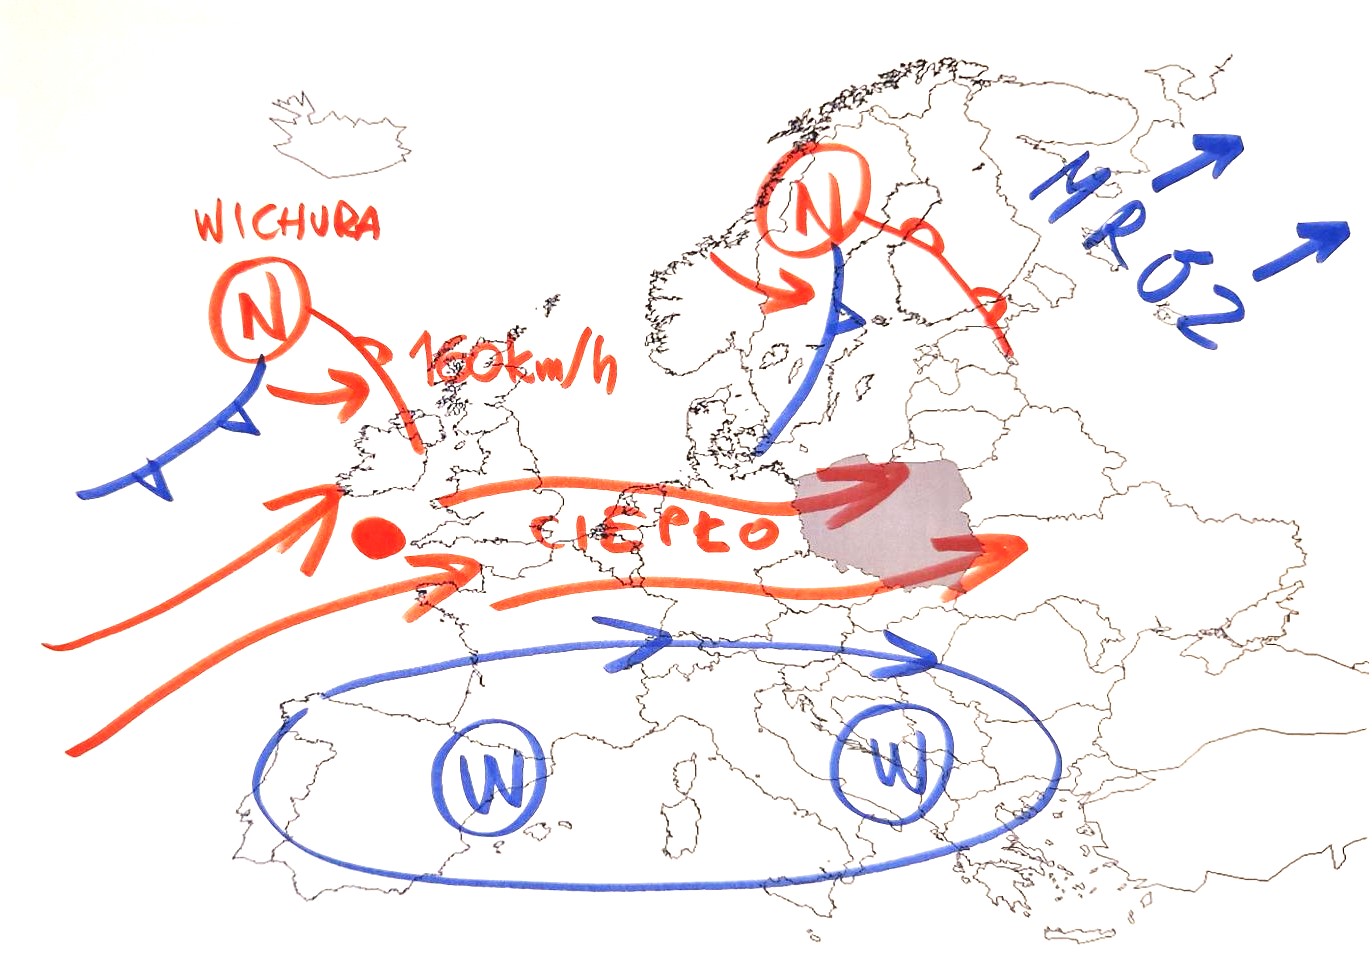 WICHURA
N
N
MRÓZ
160km/h
CIEPŁO
W
W